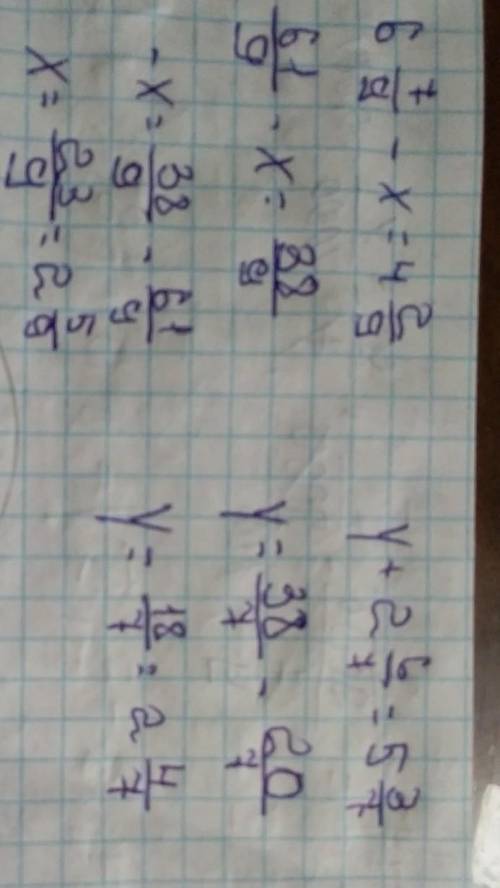 6 7/9 - x = 4 2/9
61/9 - x = 38/9
- x = 38/9 - 61/9
x = 23/9 = 2 5/9
y + 2 6/7 = 5 3/7
y = 38/7 - 20/7
y = 18/7 = 2 4/7